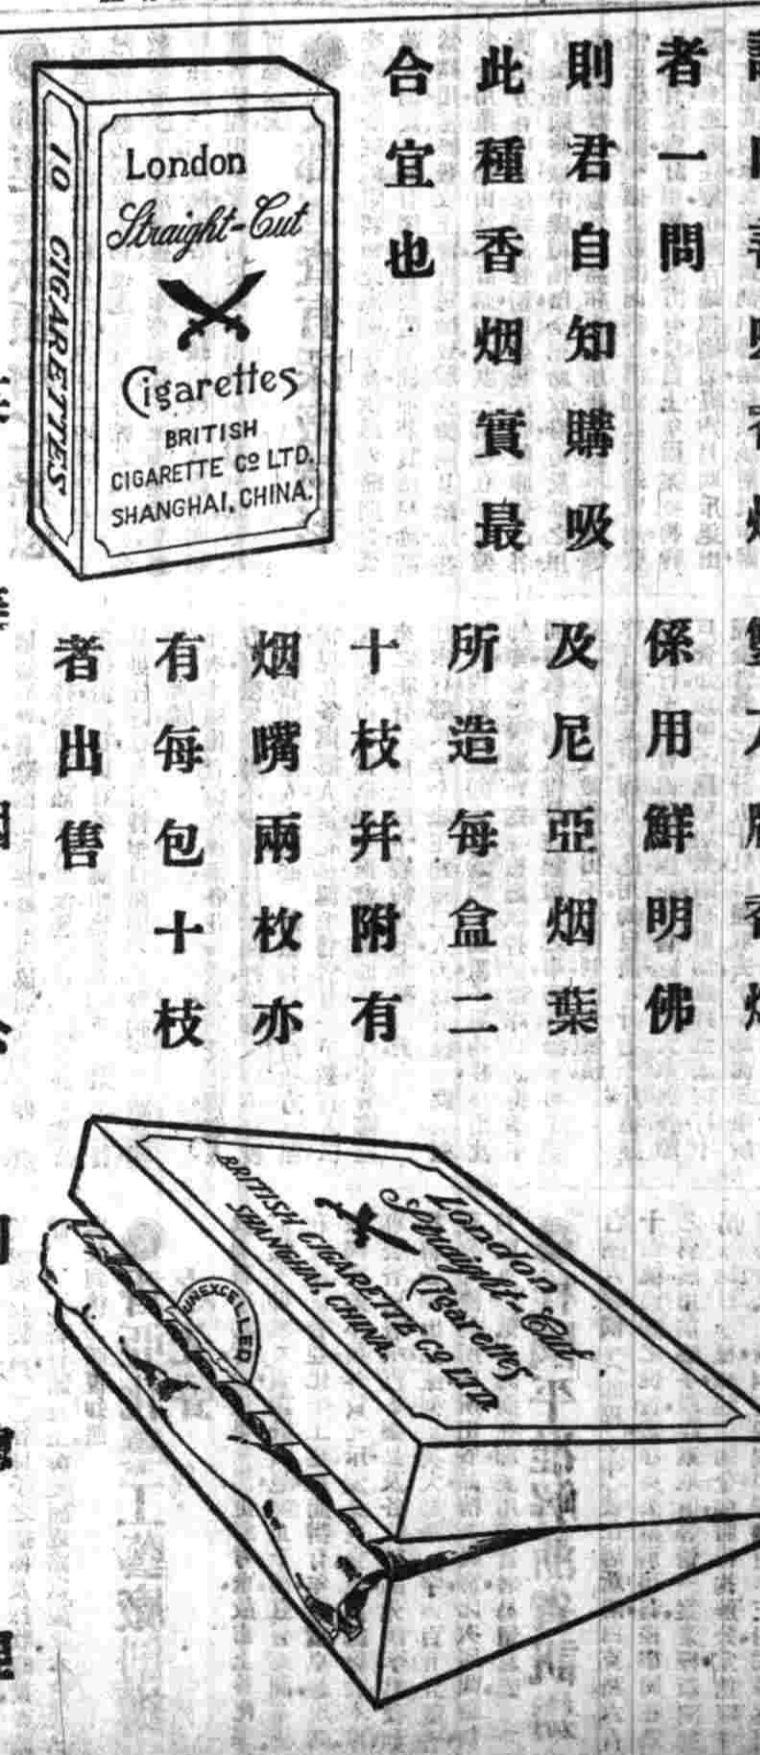 者一問
則君自知購吸
此種香烟實最
合宜也
London
Straight-Cut
Cigarettes
BRITISH
CIGARETTE Cº LTD.
SHANGHAI, CHINA.
10 CIGARETTES
係用鮮明佛
及尼亞烟葉
所造每盒二
十枝并附有
烟嘴兩枚亦
有每包十枝
者出售
London
Straight-Cut
Cigarettes
BRITISH CIGARETTE Cº LTD.
SHANGHAI, CHINA.
UNEXCELLED